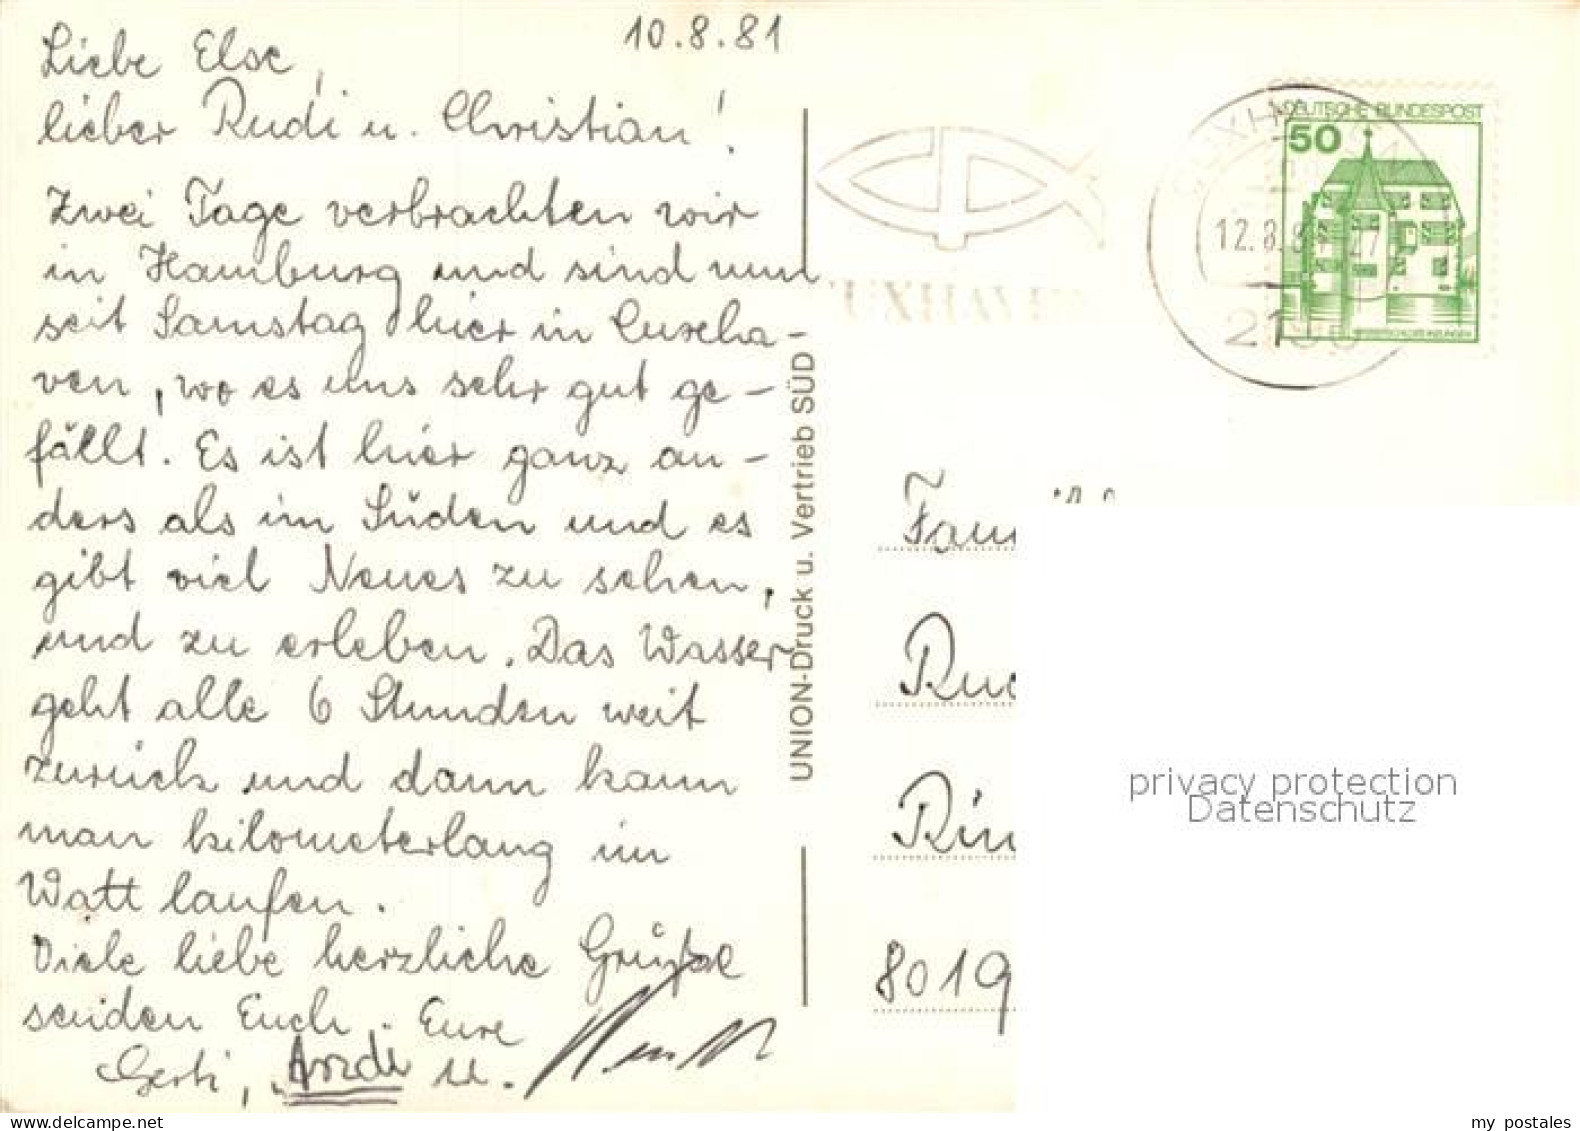 10.8.81
Liebe Else,
lieber Rudi u. Christian!
Zwei Tage verbrachten wir
in Hamburg und sind nun
seit Samstag hier in Cuxha-
ven, wo es uns sehr gut ge-
fällt. Es ist hier ganz an-
ders als im Süden und es
gibt viel Neues zu sehen,
und zu erleben. Das Wasser
geht alle 6 Stunden weit
zurück und dann kann
man kilometerlang im
Watt laufen.
Viele liebe herzliche Grüße
senden Euch. Eure
Gerti, u.
UNION-Druck u. Vertrieb SÜD
DEUTSCHE BUNDESPOST
50
12.8.8
Fam
Rud
Rin
8019
privacy protection
Datenschutz
my postales